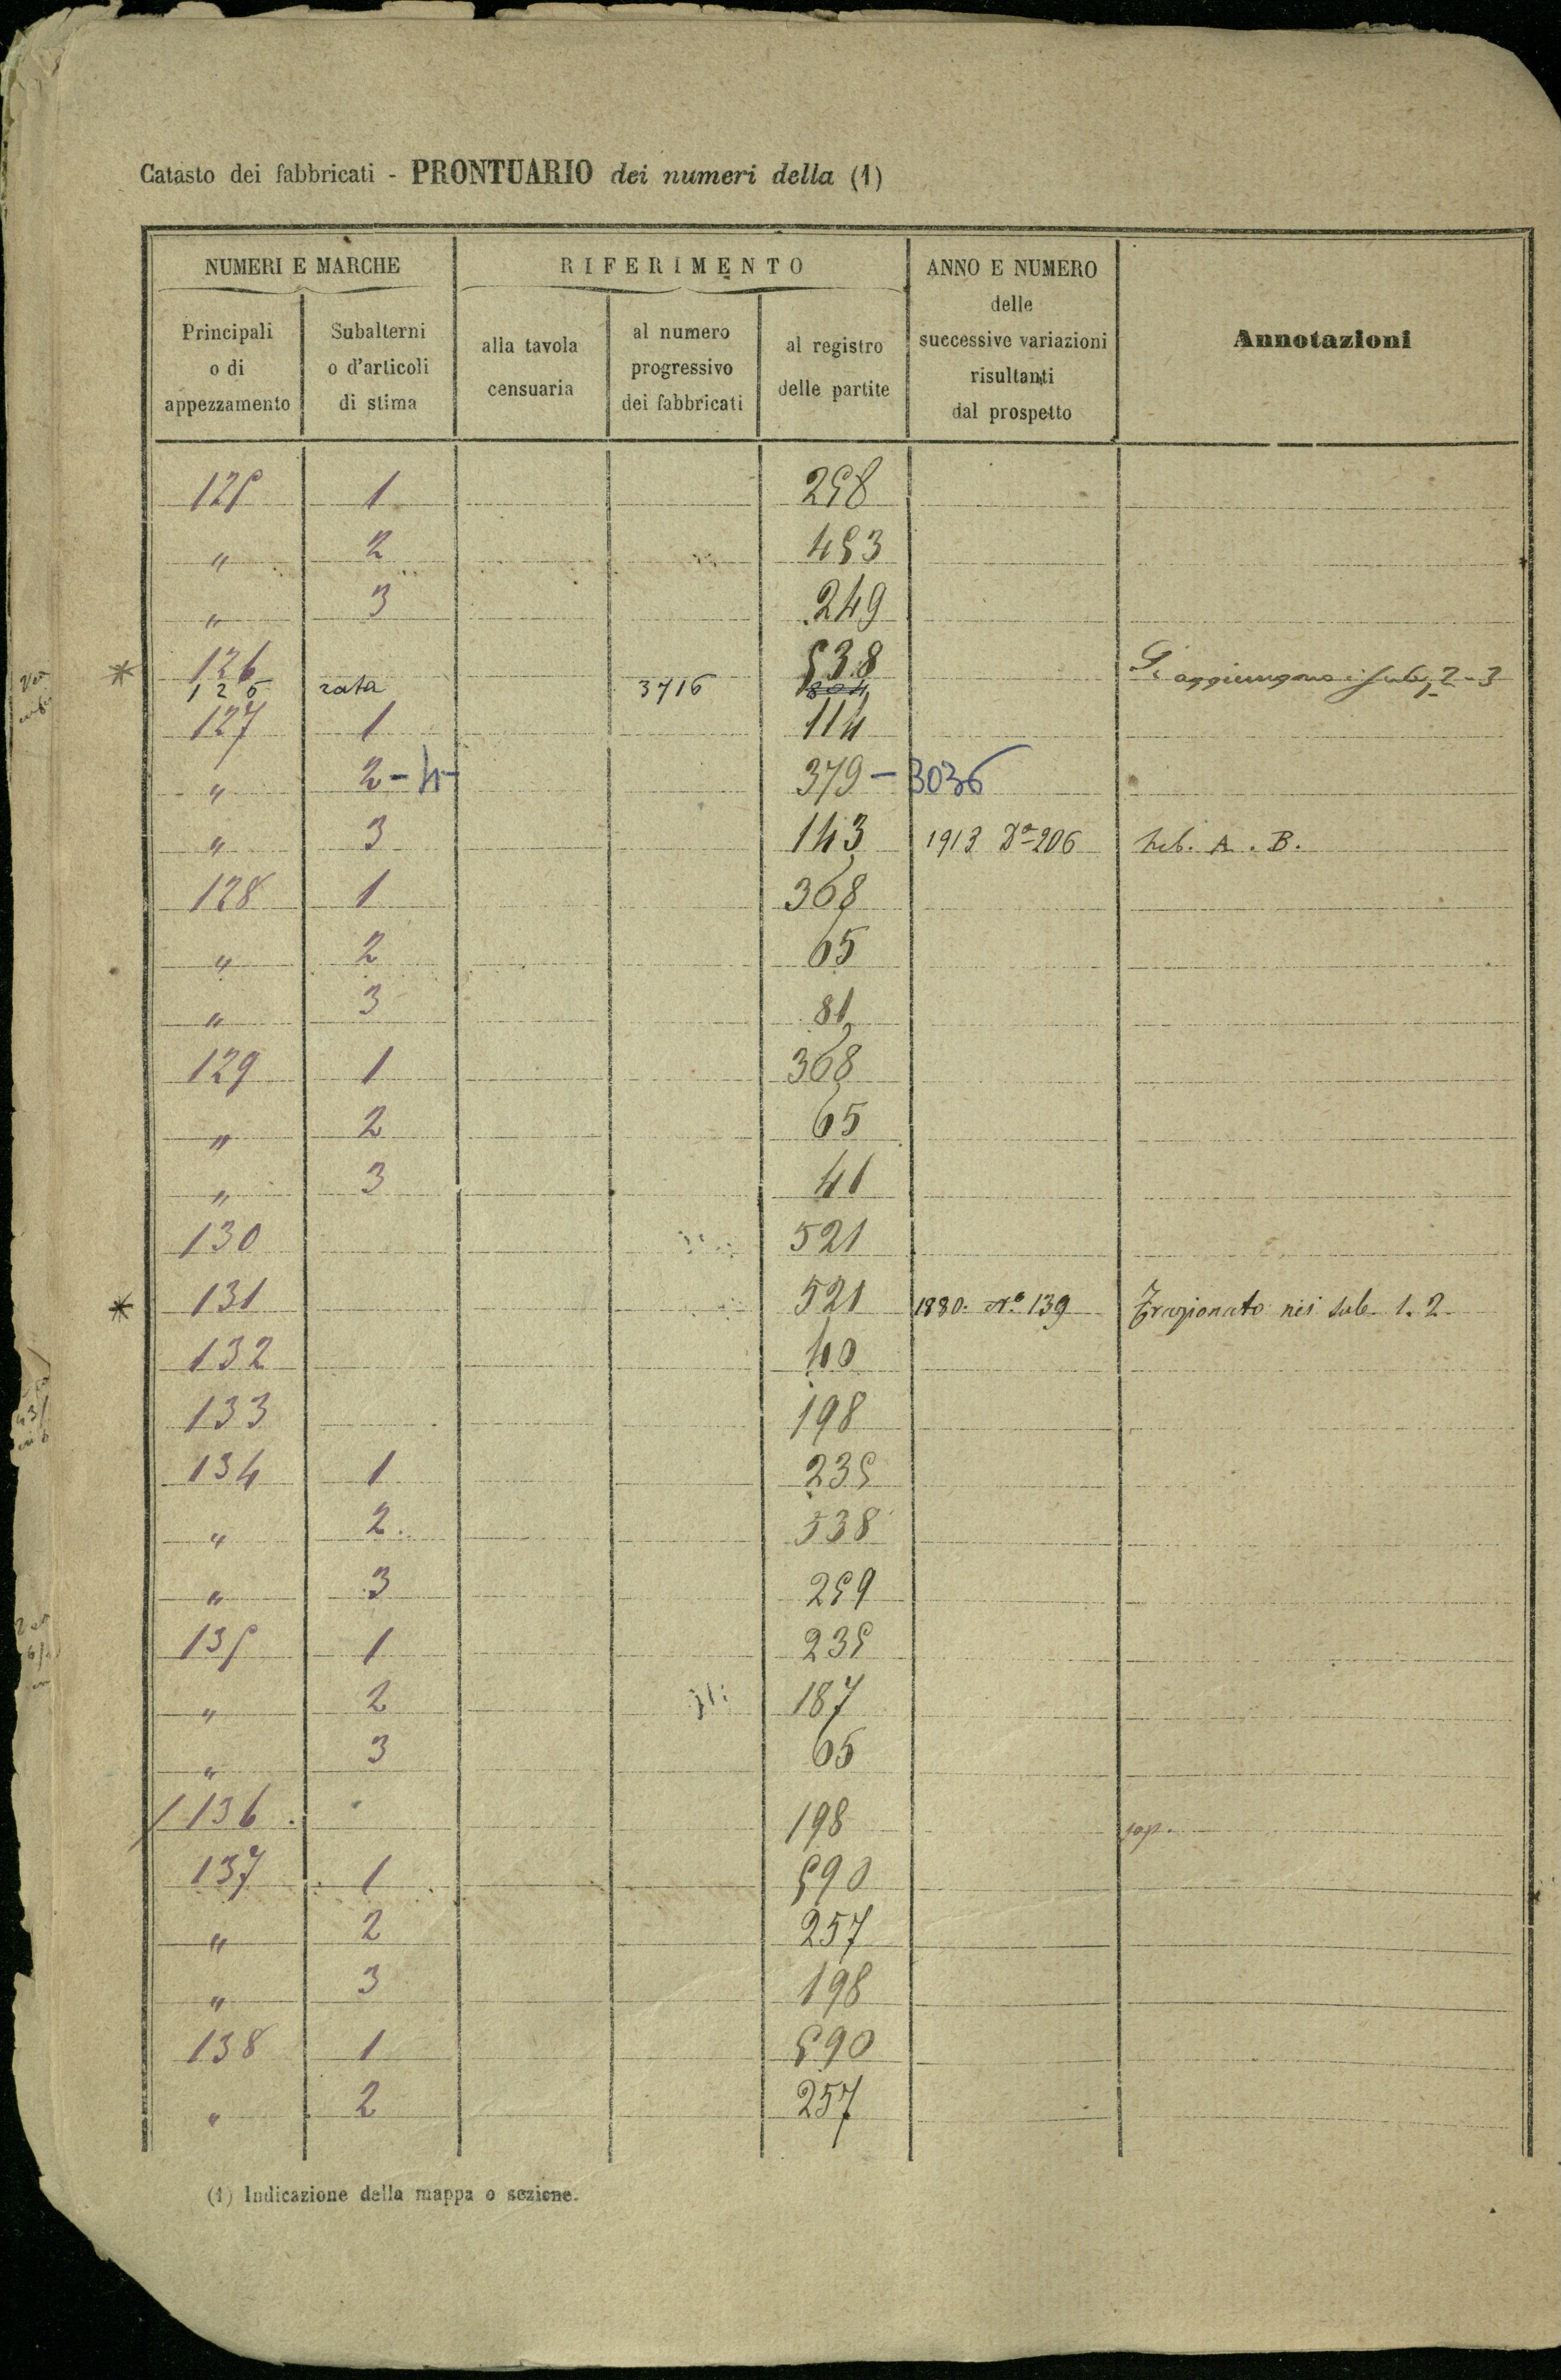 Catasto dei fabbricati - PRONTUARIO dei numeri della (1)
NUMERI E MARCHE
RIFERIMENTO
ANNO E NUMERO
delle
successive variazioni
risultanti
dal prospetto
Annotazioni
Principali
o di
appezzamento
Subalterni
o d'articoli
di stima
alla tavola
censuaria
al numero
progressivo
dei fabbricati
al registro
delle partite
125 1 258
" 2 453
" 3 249
126 538 Si aggiungono i sub. 2-3
126 rata 3716
127 1 114
" 2-4 379-3036
" 3 143 1913 Da 206 A. B.
128 1 368
" 2 65
" 3 81
129 1 368
" 2 65
" 3 41
130 521
* 131 521 1880. No 139 Frazionato nei sub. 1. 2.
132 40
133 198
134 1 235
" 2. 538
" 3 259
135 1 235
" 2 187
" 3 65
136. 198
137 1 590
" 2 257
" 3 198
138 1 590
" 2 257
(1) Indicazione della mappa o sezione.